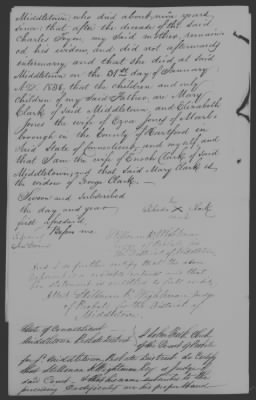 Middletown, who died about nine years
since: that after the decease of the said
Charles my said mother, remained
his widow, and did not afterwards
intermarry and that she died at said
Middletown on the 31st day of January
A.D. 1836, that the children and only
children of my said Father, are Mary
Clark of said Middletown, and Elizabeth
Jones the wife of Ezra Jones of Marl-
borough in the County of Hartford in
said State of Connecticut, and myself and
that I am the wife of Enoch Clark of said
Middletown, and that said Mary Clark is
the widow of George Clark. —
Sworn and Subscribed
the day and year
first aforesaid
Before me
her
X Clark
mark
And I do further certify that the above
deponent is a credible witness and that
the statement is entitled to full credit,
Attest Stillman K. Wightman Judge
of Probate for the District of
Middletown.
State of Connecticut
Middletown Probate District
I John Clerk
of the Court of Probate
for said Middletown Probate District do Certify
that Stillman K. Wightman Esq is Judge of
said Court, & that his name subscribed to the
preceding Certificate is his proper hand